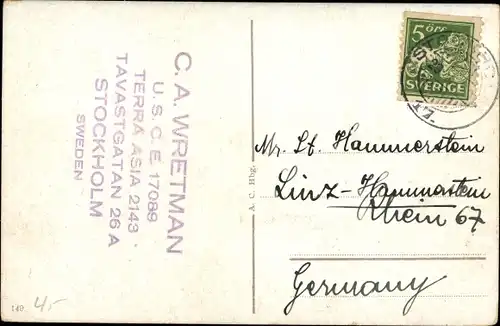 C. A. WRETMAN
U. S. C. E. 17089
TERRA ASIA 2143
TAVASTGATAN 26 A
STOCKHOLM
SWEDEN
5 ÖRE
SVERIGE
Mr. St. Hammerstein
Linz-Hammerstein
Rhein 67
Germany
4,-